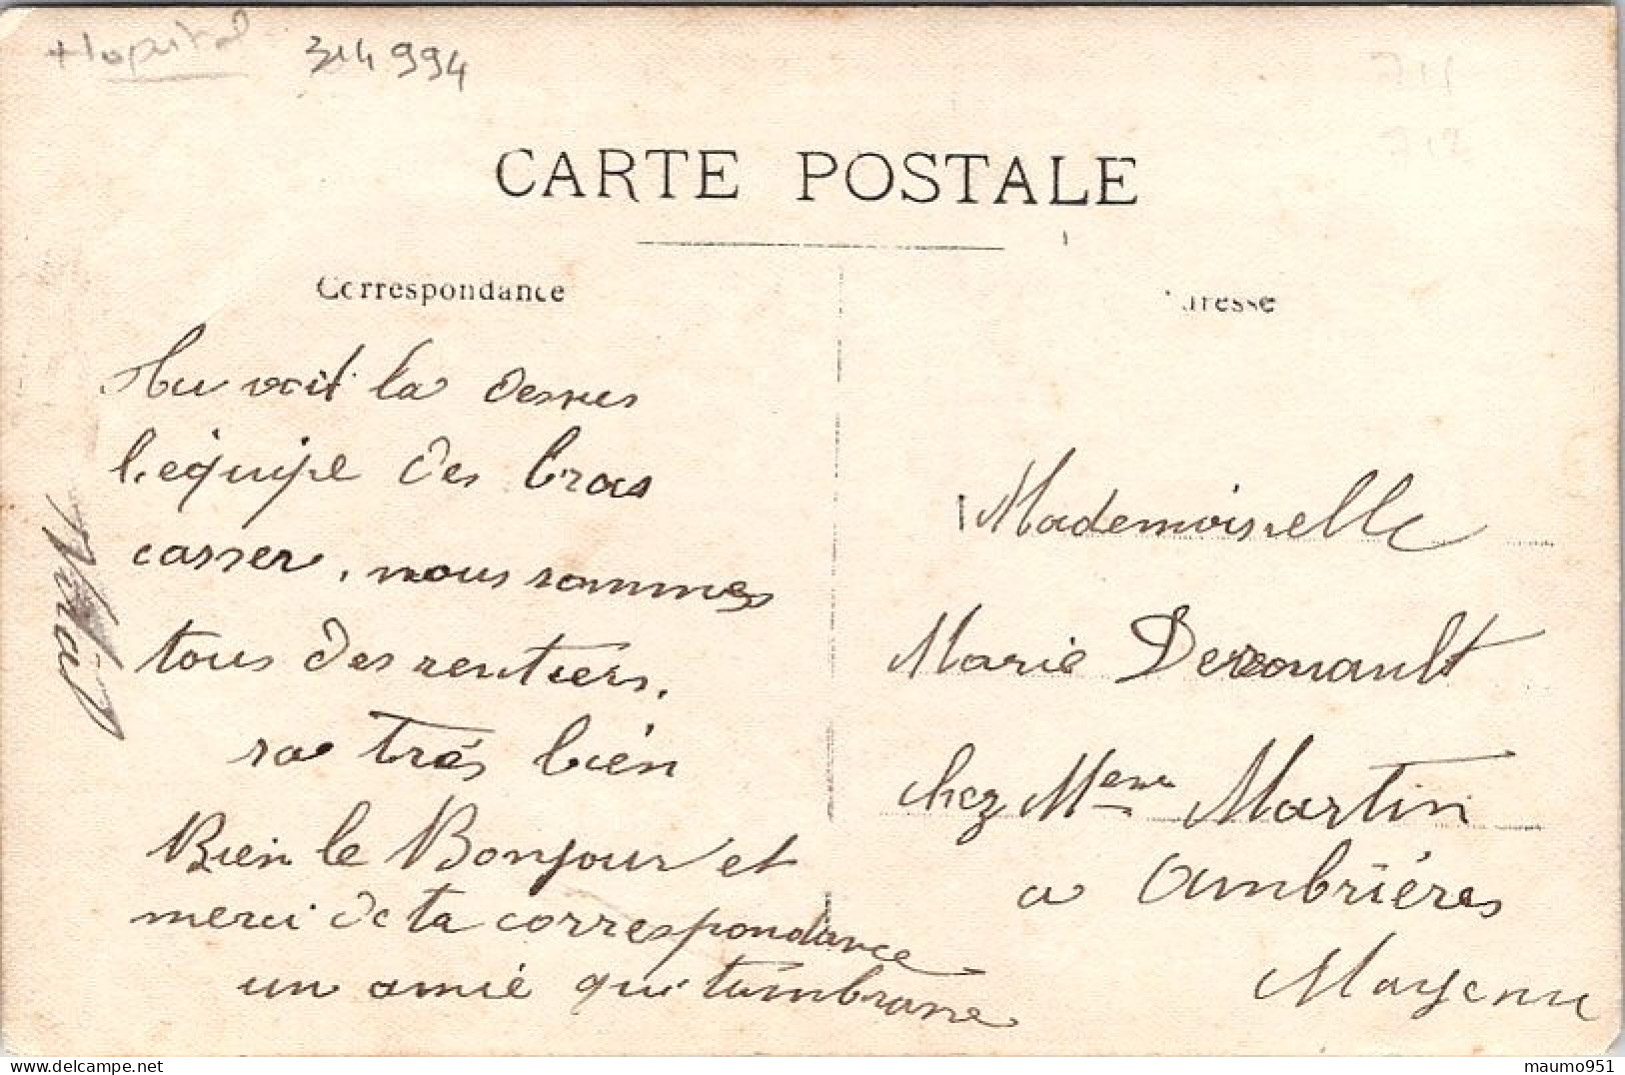 Hopital 314994
CARTE POSTALE
Correspondance
Tu voit la dessus
l'équipe des bras
casser, nous sommes
tous des rentiers.
sa trés bién
Bien le Bonjour et
merci de ta correspondance
un amié qui t'embrasse
Victor
Mademoiselle
Marie Derouault
chez Meme Martin
a Ambriéres
Mayenne
maumo951